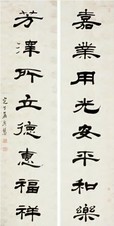 嘉業用光安平和樂
芳澤所立德惠福祥